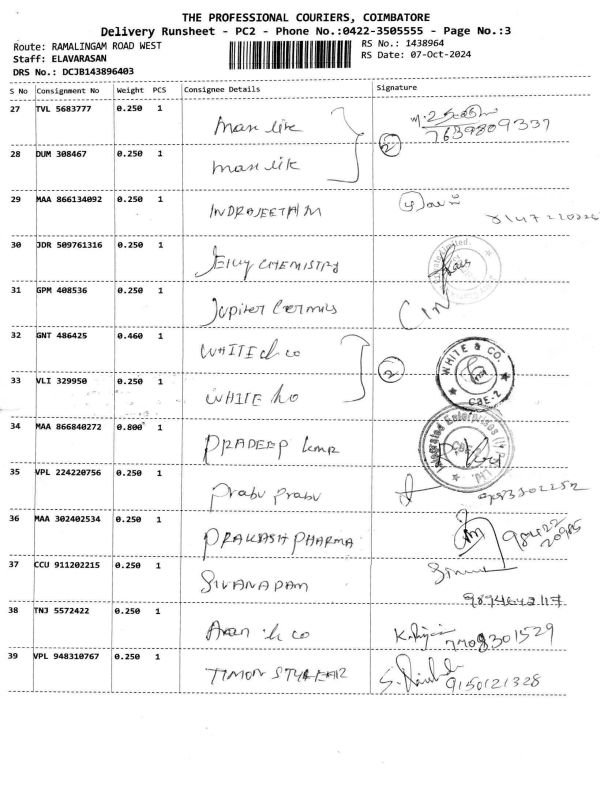 THE PROFESSIONAL COURIERS, COIMBATORE
Delivery Runsheet - PC2 - Phone No.:0422-3505555 - Page No.:3
Route: RAMALINGAM ROAD WEST
RS No.: 1438964
Staff: ELAVARASAN
RS Date: 07-Oct-2024
DRS No.: DCJB143896403
S No Consignment No Weight PCS Consignee Details Signature
27 TVL 5683777 0.250 1
7639809337
28 DUM 308467 0.250 1 2
29 MAA 866134092 0.250 1 INDRAJEETH M
30 JDR 509761316 0.250 1 CHEMISTRY
31 GPM 408536 0.250 1 Jupiter
32 GNT 486425 0.460 1 WHITE & co
2 WHITE & CO. CBE-2
33 VLI 329950 0.250 1 WHITE
34 MAA 866840272 0.800 1 PRADEEP kmr Integrated Enterprises
35 VPL 224220756 0.250 1 Prabu Prabu
36 MAA 302402534 0.250 1 PRAKASH PHARMA 98422 20985
37 CCU 911202215 0.250 1
9894642117
38 TNJ 5572422 0.250 1 7708301529
39 VPL 948310767 0.250 1 TIMON 9150121328